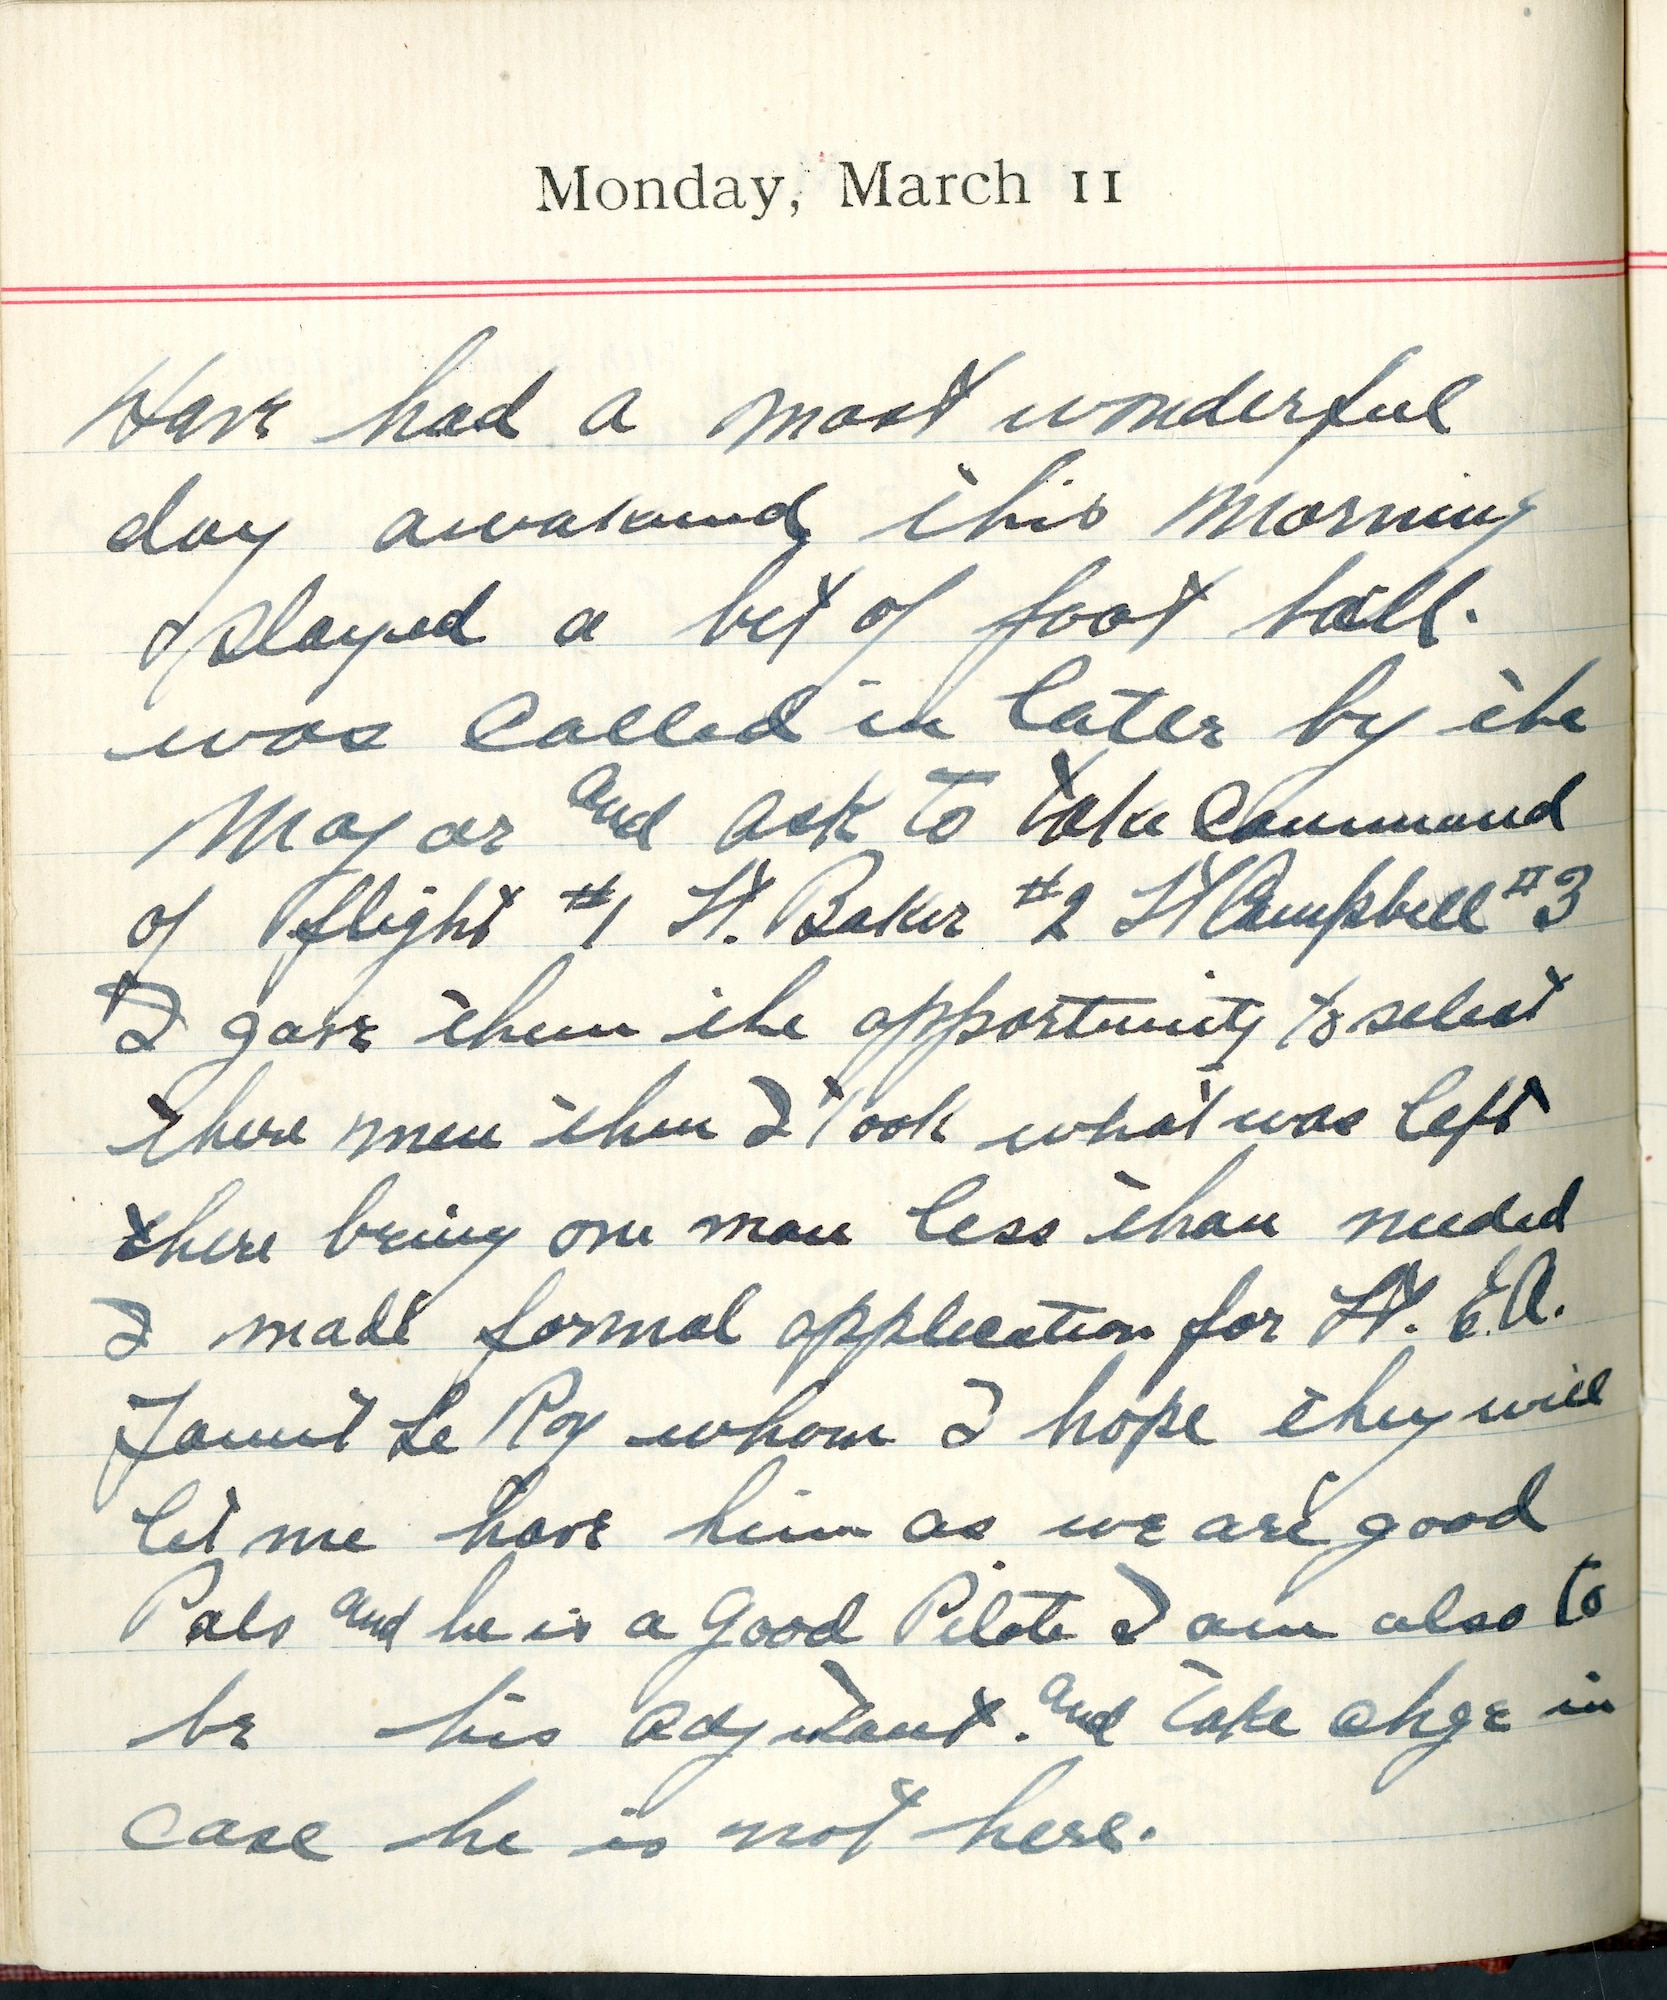 Monday, March 11
Have had a most wonderful
day awakened this morning
& played a bit of foot ball.
was called in later by the
Major and ask to take command
of flight #1 Lt. Baker #2 Lt Campbell #3
I gave them the opportunity to select
there men then I took what was left
there being one man less than needed
I made formal application for Lt. E.A.
Le Roy whom I hope they will
let me have him as we are good
Pals and he is a good Pilote I am also to
be his adjutant. and take chge in
case he is not here.